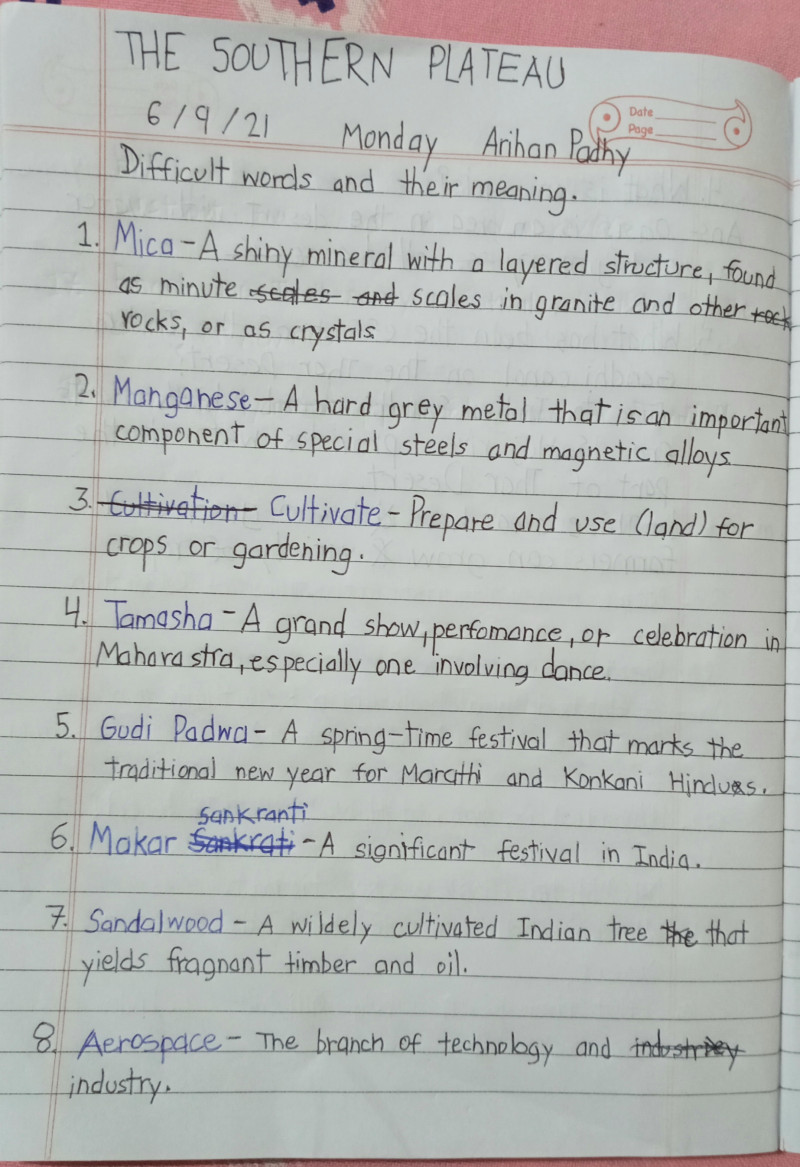 THE SOUTHERN PLATEAU
Date
Page
6/9/21 Monday Arihan Padhy
Difficult words and their meaning.
1. Mica - A shiny mineral with a layered structure, found
as minute scales and scales in granite and other rock
rocks, or as crystals.
2. Manganese - A hard grey metal that is an important
component of special steels and magnetic alloys.
3. Cultivation Cultivate - Prepare and use (land) for
crops or gardening.
4. Tamasha - A grand show, perfomance, or celebration in
Maharastra, especially one involving dance.
5. Gudi Padwa - A spring-time festival that marks the
traditional new year for Marathi and Konkani Hindus.
sankranti
6. Makar Sankrati - A significant festival in India.
7. Sandalwood - A wildely cultivated Indian tree the that
yields fragnant timber and oil.
8. Aerospace - The branch of technology and
industry.